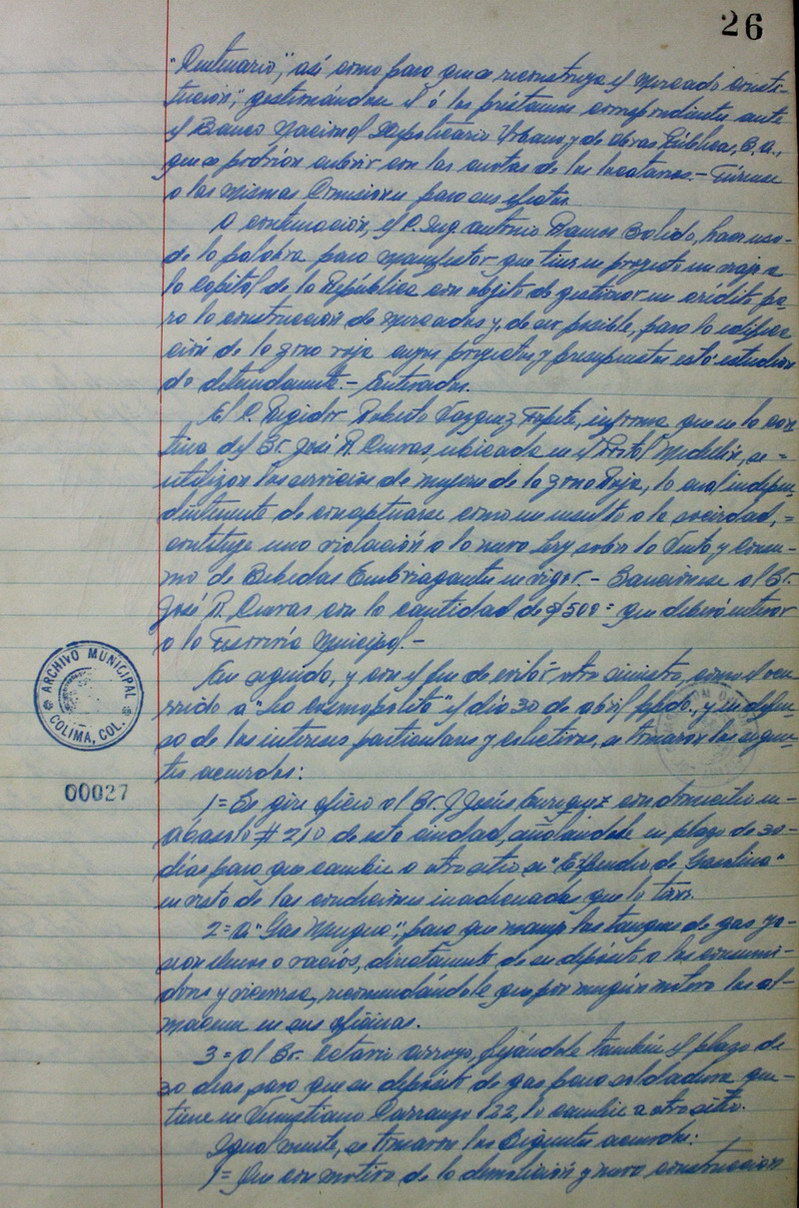 26
"Centenario", así como para que se reconstruya el Mercado Consti-
tución", gestionándose el ó los préstamos correspondientes ante
el Banco Nacional Hipotecario Urbano y de Obras Públicas, S.A.,
que se podrían cubrir con las cuotas de los locatarios.- Túrnese
a las mismas Comisiones para sus efectos.
A continuación, el C. Ing. Antonio Ramos Salido, hace uso-
de la palabra para manifestar que tiene en proyecto un viaje a
la Capital de la República con objeto de gestionar un crédito pa-
ra la construcción de Mercados y, de ser posible, para la edifica-
ción de la zona roja cuyos proyectos y presupuestos está estudian-
do detenidamente.- Enterados.
El C. Regidor Roberto Vázquez informa que en la can-
tina del Sr. José R. Cuevas ubicada en el Portal Medellín, se-
utilizan los servicios de mujeres de la zona Roja, lo cual indepen-
dientemente de conceptuarse como un insulto a la sociedad,=
constituye una violación a la nueva Ley sobre la Venta y Consu-
mo de Bebidas Embriagantes en vigor.- Sanciónese al Sr.
José R. Cuevas con la cantidad de $500= que deberá enterar
a la Tesorería Municipal.-
En seguida, y con el fin de evitar otro siniestro, como el ocu-
rrido a "La Cosmopolita" el día 30 de abril ppdo., y en defen-
sa de los intereses particulares y colectivos, se tomaron los siguien-
tes acuerdos:
ARCHIVO MUNICIPAL
COLIMA, COL.
00027
1= Se gire oficio al Sr. J. Jesús Enríquez con domicilio en-
Abasolo # 210 de esta ciudad, señalándole un plazo de 30-
días para que cambie a otro sitio su "Expendio de Gasolina"
en vista de las condiciones inadecuadas que lo tiene.
2= A "Gas Menguc", para que maneje los tanques de gas ya-
sean llenos o vacíos, directamente de su depósito a los consumi-
dores y viceversa, recomendándole que por ningún motivo los al-
macene en sus oficinas.
3= Al Sr. Octavio Arroyo, fijándole también el plazo de
30 días para que su depósito de gas para soldadura que-
tiene en Venustiano Carranza 122, lo cambie a otro sitio.
Igualmente, se tomaron los Siguientes acuerdos:
1= Que con motivo de la demolición y nueva construcción